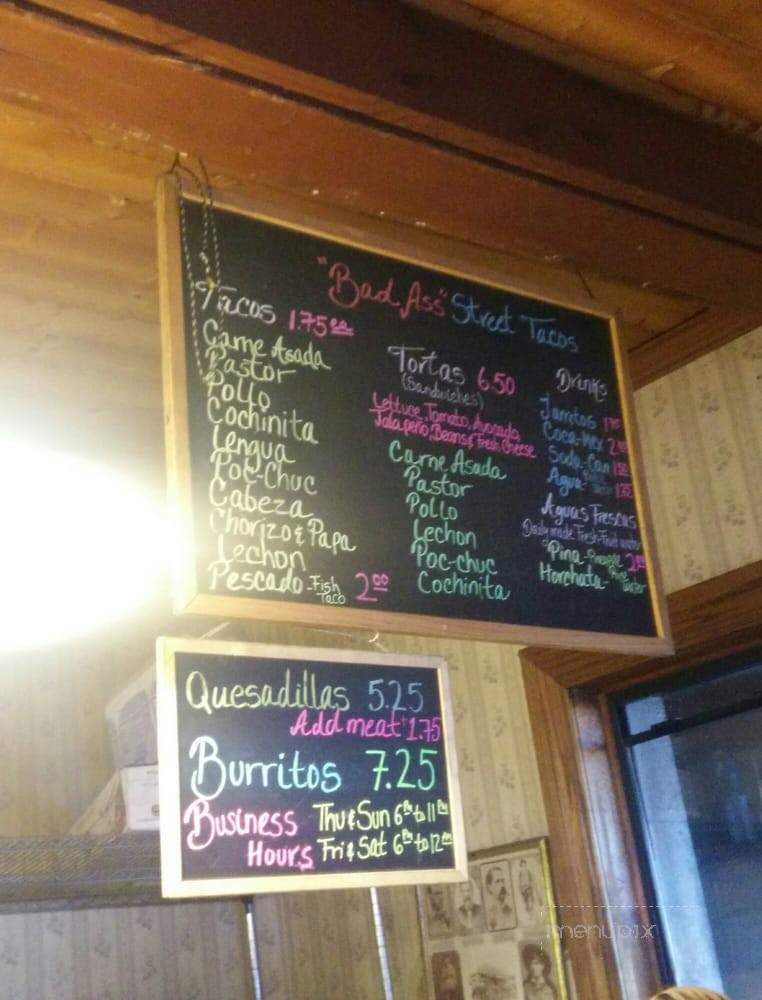 "Bad Ass" Street Tacos
Tacos 1.75 ea
Carne Asada
Pastor
Pollo
Cochinita
Lengua
Poc-Chuc
Cabeza
Chorizo & Papa
Lechon
Pescado - Fish Taco 2.00
Tortas 6.50
(Sandwiches)
Lettuce, Tomato, Avocado,
Jalapeño, Beans & Fresh Cheese
Carne Asada
Pastor
Pollo
Lechon
Poc-chuc
Cochinita
Drinks
Jarritos
Coca-Mex
Soda-Can
Agua
Aguas Frescas
Daily made Fresh-Fruit water
Pina - Pineapple
Horchata - Rice Water
Quesadillas 5.25
Add meat + 1.75
Burritos 7.25
Business Hours
Thu & Sun 6PM to 11PM
Fri & Sat 6PM to 12AM
menupix